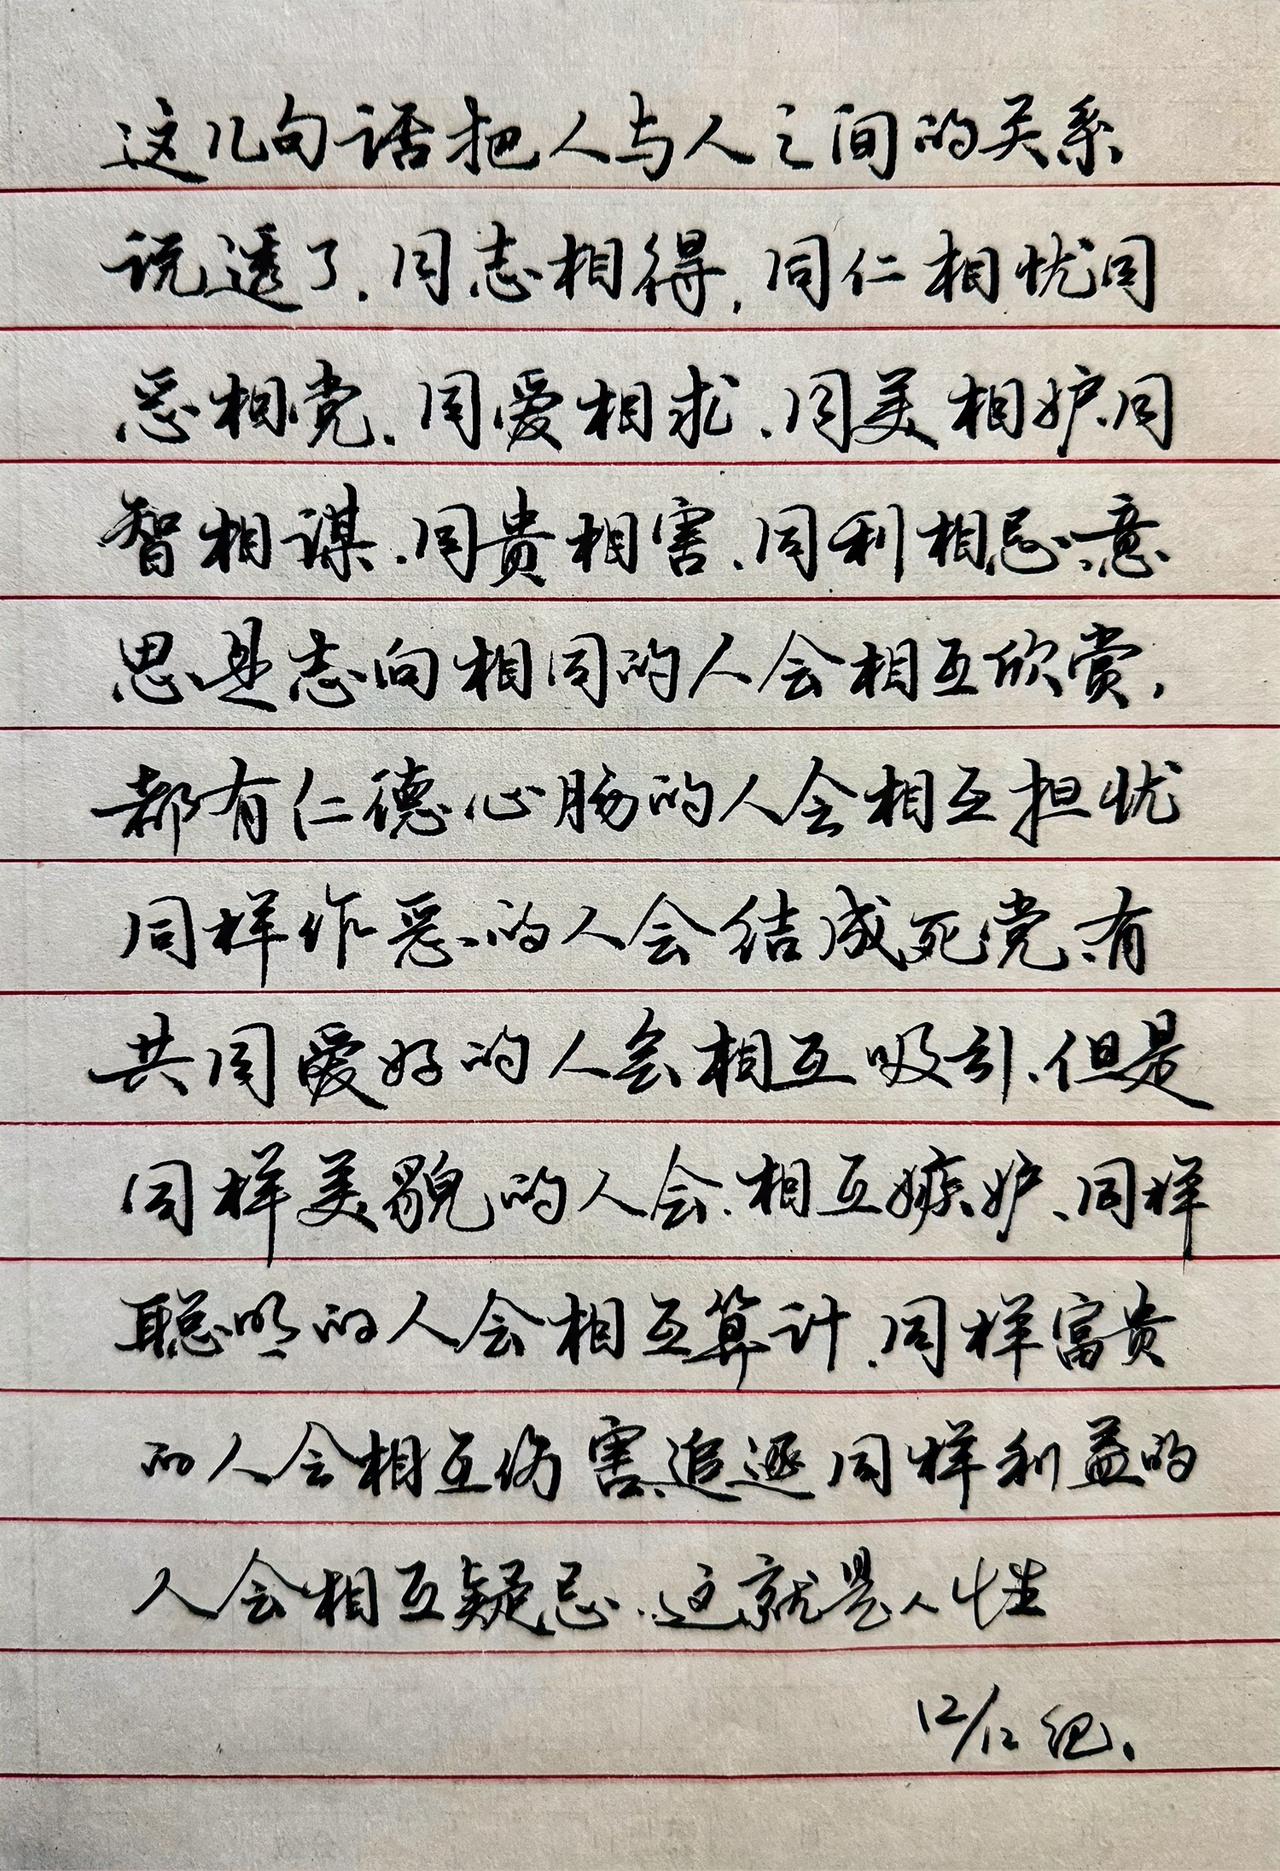 这几句话把人与人之间的关系
说透了.同志相得,同仁相忧同
恶相党.同爱相求.同美相妒.同
智相谋.同贵相害.同利相忌.意
思是志向相同的人会相互欣赏,
都有仁德心肠的人会相互担忧
同样作恶的人会结成死党.有
共同爱好的人会相互吸引.但是
同样美貌的人会相互嫉妒、同样
聪明的人会相互算计.同样富贵
的人会相互伤害.追逐同样利益的
人会相互疑忌.这就是人性
12/12